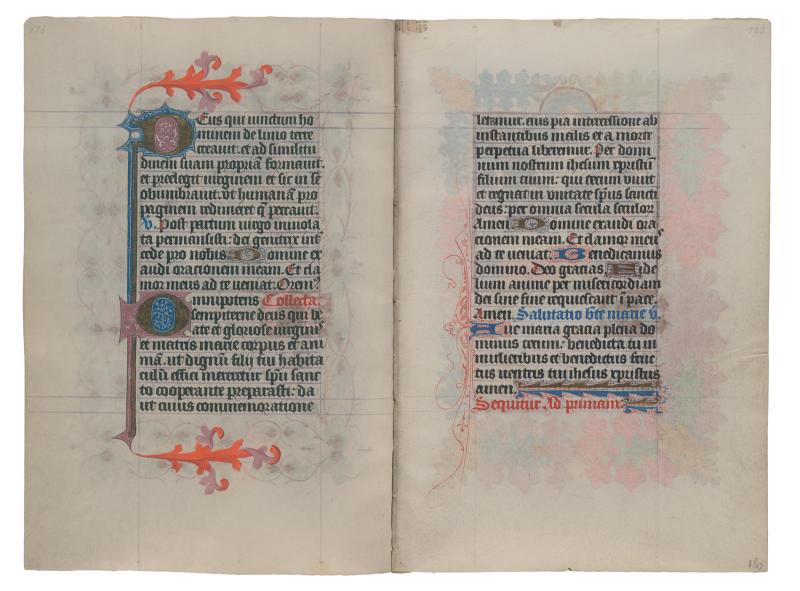 Deus qui unctum ho
minem de limo terre
creauit. et ad similitu
dinem suam propriā formauit.
et preelegit uirginem et sic in se
obumbrauit. vt humanā pro
paginem redimeret q̄ perauit.
V. Post partum uirgo inuiola
ta permansisti: dei genitrix int
cede pro nobis Domine ex
audi oracionem meam. Et cla
mor meus ad te ueniat. Orem᷒
Omnipotens Collecta.
sempiterne deus qui be
ate et gloriose uirginis
et matris marie corpus et ani
mā. ut dignū filij tui habita
culū effici mereretur spū sanc
to cooperante preparasti: da
ut cuius commemoratione
letamur. eius pia intercessione ab
instantibus malis et a morte
perpetua liberemur. Per domi
num nostrum ihesum xpristū
filium tuum: qui tecum viuit
et regnat in vnitate spūs sancti
deus: per omnia secula seculor
Amen Domine exaudi ora
cionem meam. Et clamor meus
ad te ueniat. Benedicamus
domino. Deo gracias. Fide
lium anime per misericordiam
dei sine fine requiescant ī pace.
Amen. Salutatio bte marie v.
Aue maria gracia plena do
minus tecum: benedicta tu in
mulieribus et benedictus fruc
tus uentris tui ihesus xpristus
amen.
Sequitur Ad primam: